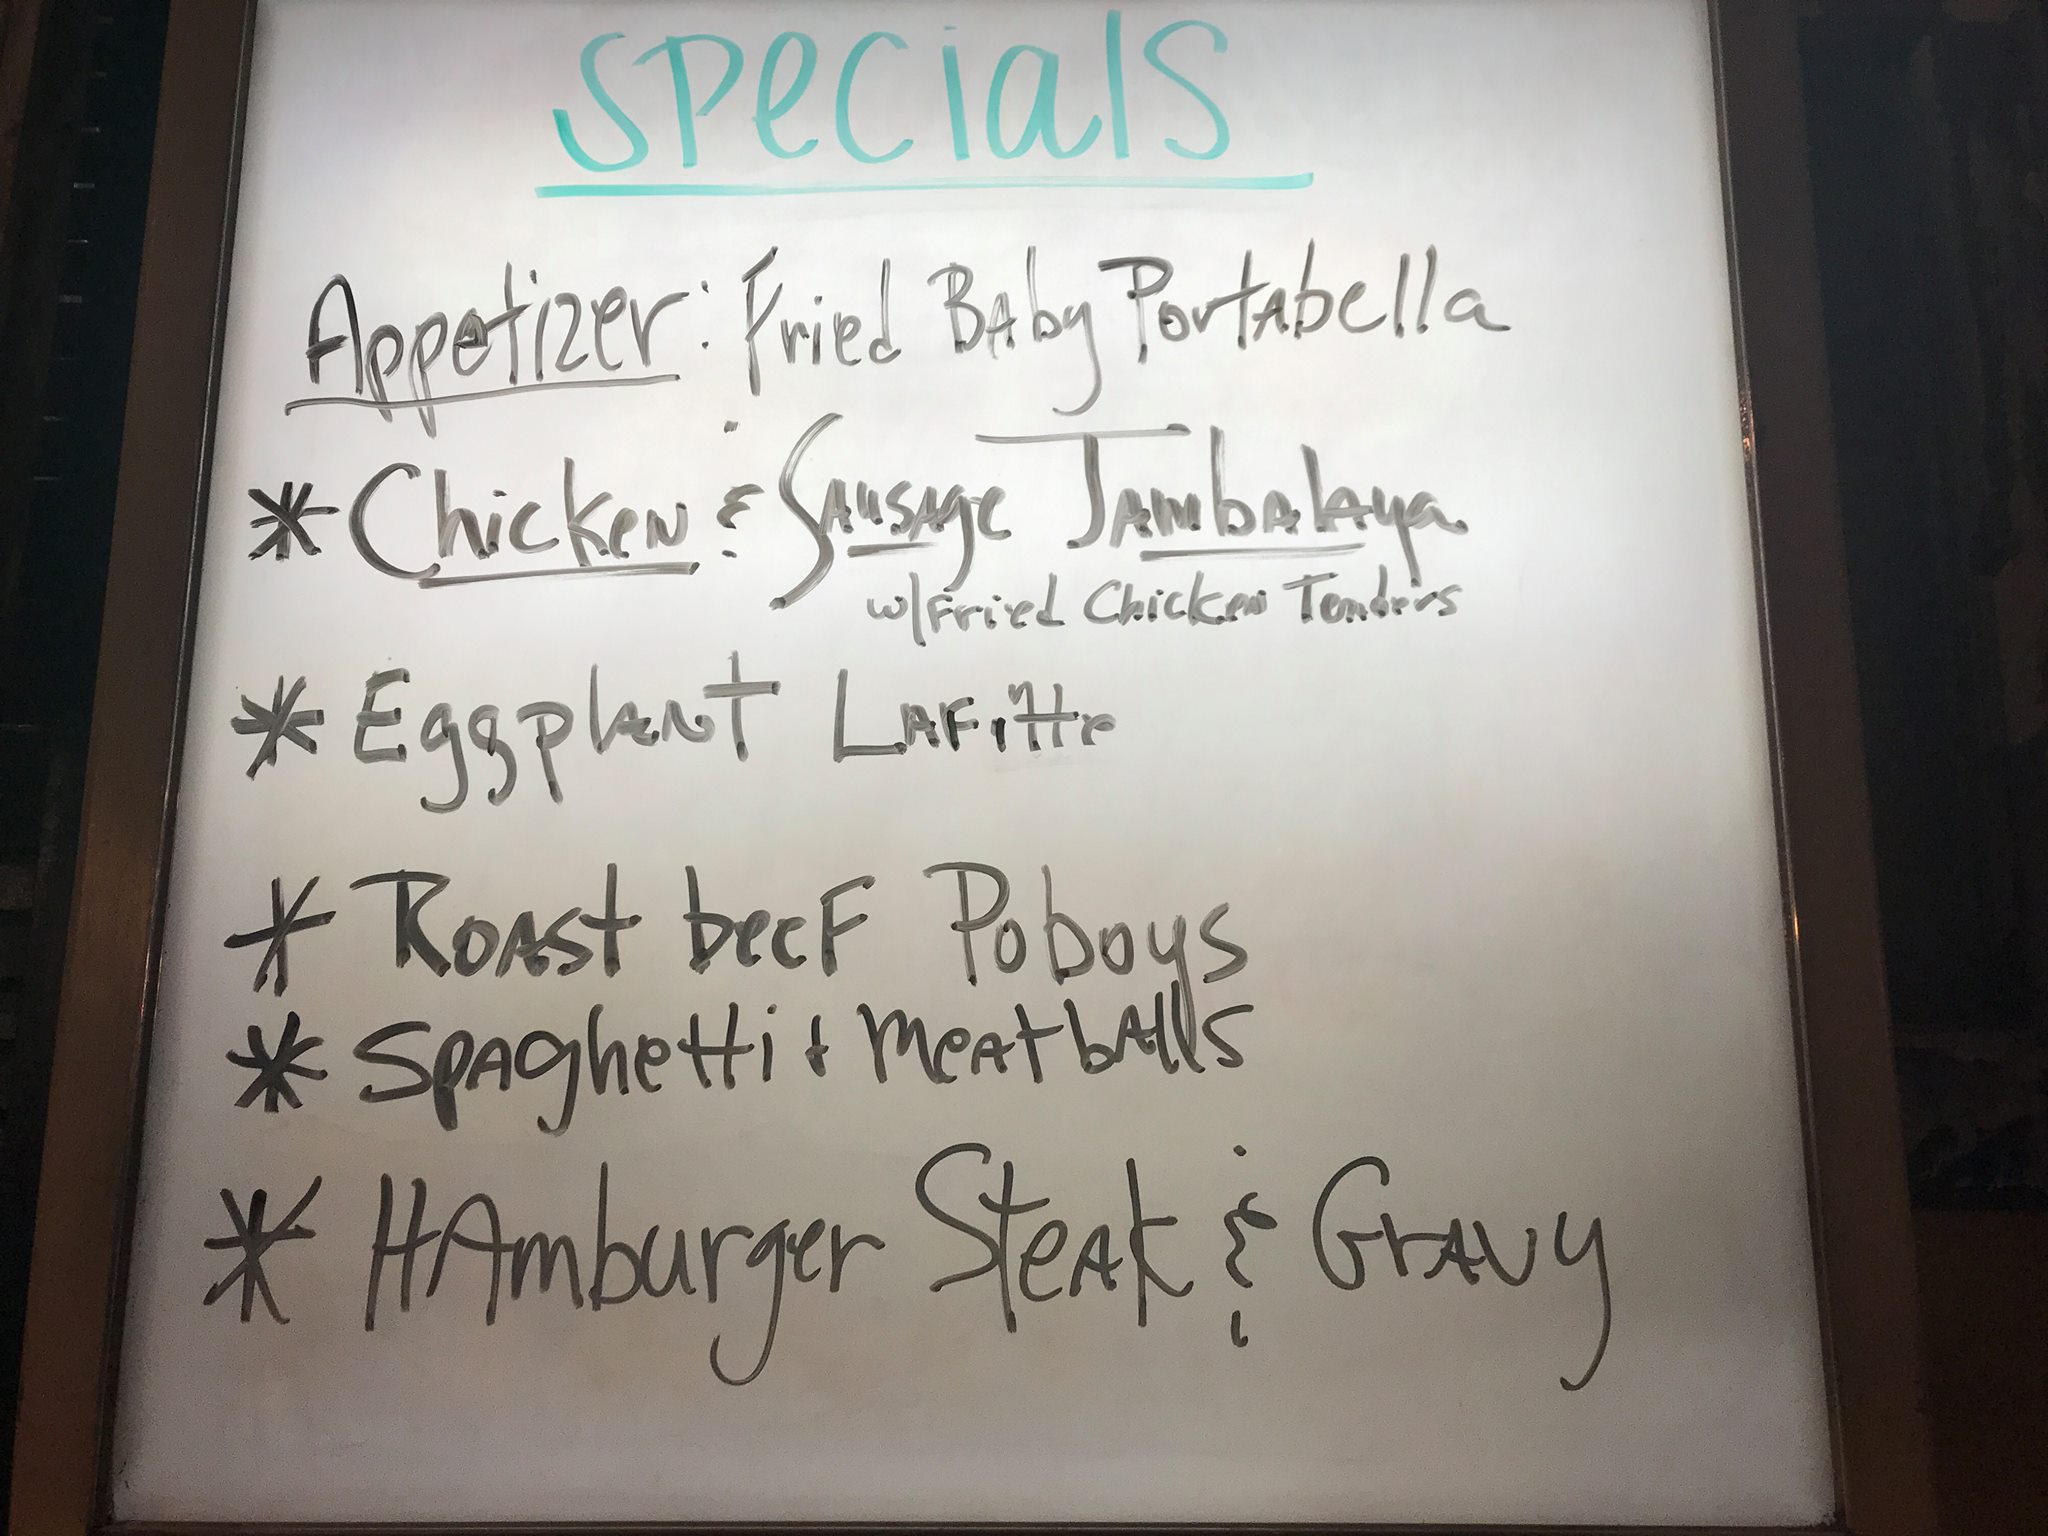 Specials
Appetizer: Fried Baby Portabella
* Chicken & Sausage Jambalaya
w/Fried Chicken Tenders
* Eggplant Lafitte
* Roast beef Poboys
* Spaghetti + Meatballs
* Hamburger Steak & Gravy